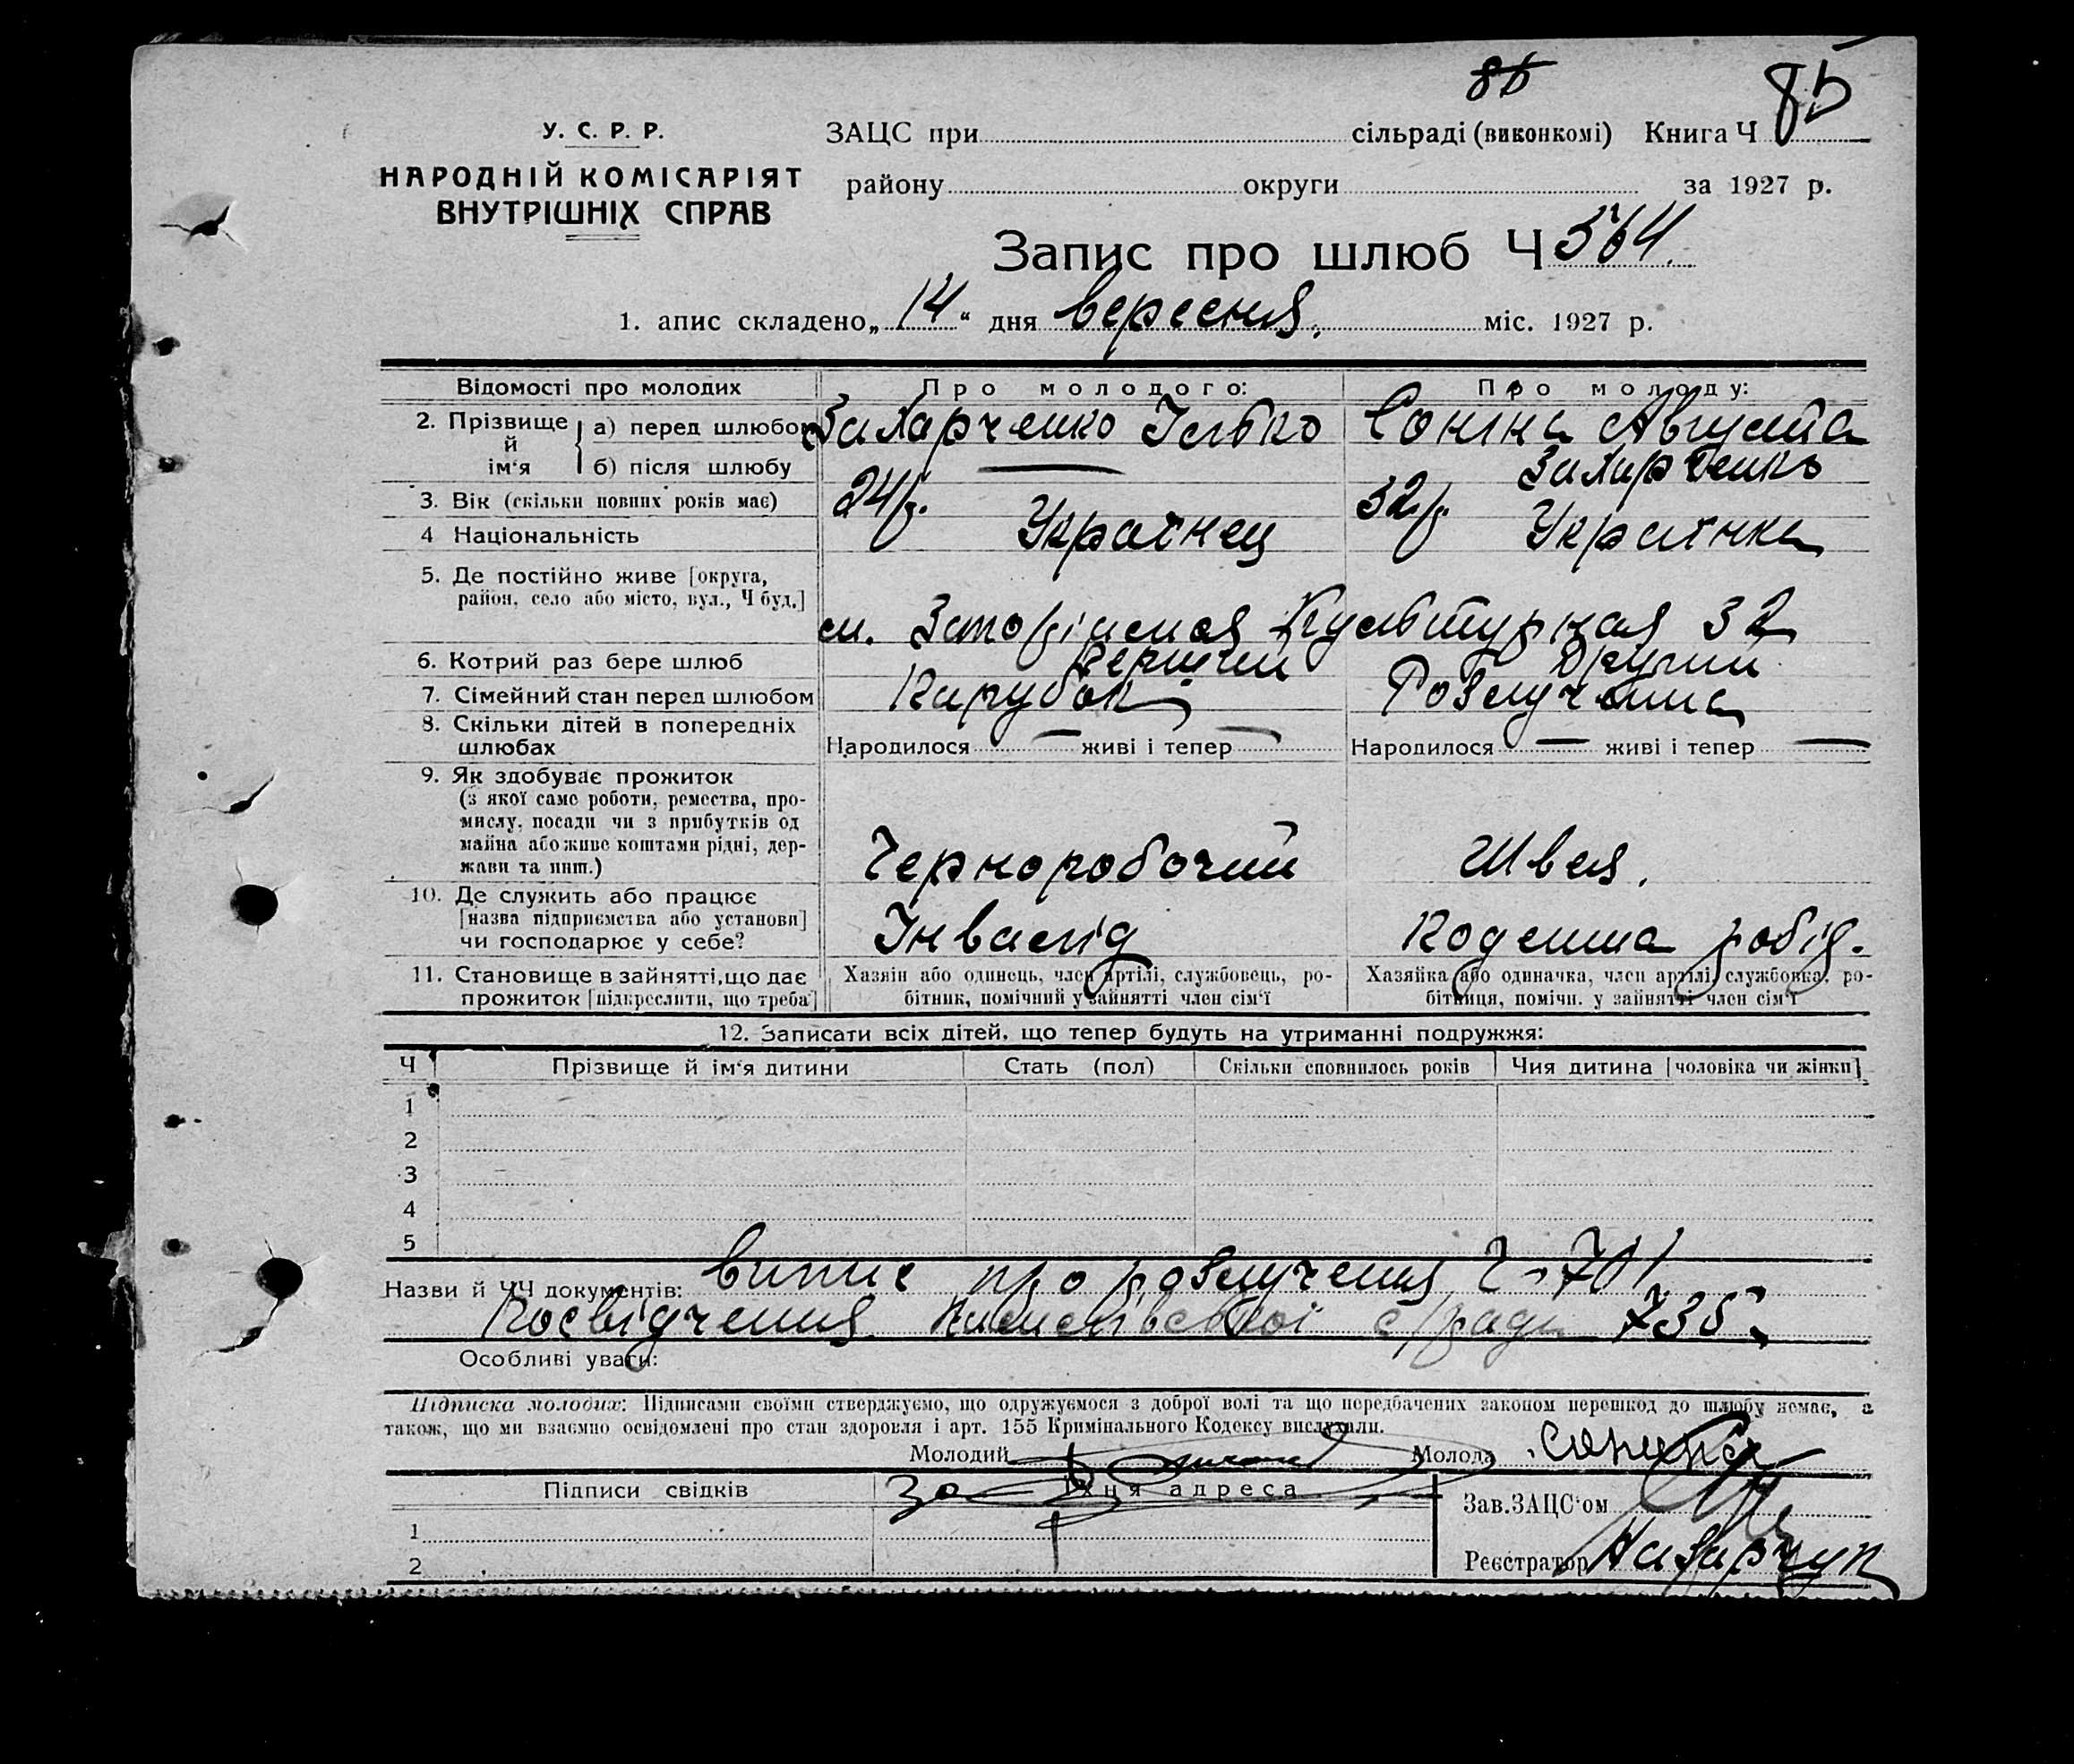 8Б
8Б
У. С. Р. Р.
НАРОДНІЙ КОМІСАРІЯТ
ВНУТРІШНІХ СПРАВ
ЗАЦС при сільраді (виконкомі) Книга Ч
району округи за 1927 р.
Запис про шлюб Ч 564.
1. апис складено „14“ дня вересня. міс. 1927 р.
Відомості про молодих Про молодого: Про молоду:
2. Прізвище й ім‘я
а) перед шлюбом Захарченко Ілько Соніна Августа
б) після шлюбу — Захарченко
3. Вік (скільки повних років має) 24р. 32р.
4 Національність Украінец Украінка
5. Де постійно живе [округа,
район, село або місто, вул., Ч буд.]
м. Запоріжжя Культурная 32
6. Котрий раз бере шлюб Перший Другий
7. Сімейний стан перед шлюбом Парубок Розлучена
8. Скільки дітей в попередніх
шлюбах
Народилося — живі і тепер — Народилося — живі і тепер —
9. Як здобуває прожиток
(з якої саме роботи, ремества, про-
мислу, посади чи з прибутків од
майна або живе коштами рідні, дер-
жави та инш.)
Черноробочий Швея.
10. Де служить або працює
[назва підприємства або установи]
чи господарює у себе?
Інвалід робід.
11. Становище в зайнятті, що дає
прожиток [підкреслити, що треба]
Хазяін або одинець, член артілі, службовець, ро-
бітник, помічний у зайнятті член сім‘ї
Хазяйка або одиначка, член артілі, службовка, ро-
бітниця, помічн. у зайнятті член сім‘ї
12. Записати всіх дітей, що тепер будуть на утриманні подружжя:
Ч Прізвище й ім‘я дитини Стать (пол) Скільки сповнилось років Чия дитина [чоловіка чи жінки]
1
2
3
4
5
Назви й ЧЧ документів: Випис про розлучення Ч 701
Посвідчення с/ради 735
Особливі уваги:
Підписка молодих: Підписами своїми стверджуємо, що одружуємося з доброї волі та що передбачених законом перешкод до шлюбу немає, а
також, що ми взаємно освідомлені про стан здоровля і арт. 155 Кримінального Кодексу вислухали.
Молодий Молода Сонина
Підписи свідків Їхня адреса
За
Зав. ЗАЦС‘ом
1
2
Реєстратор Назарчук